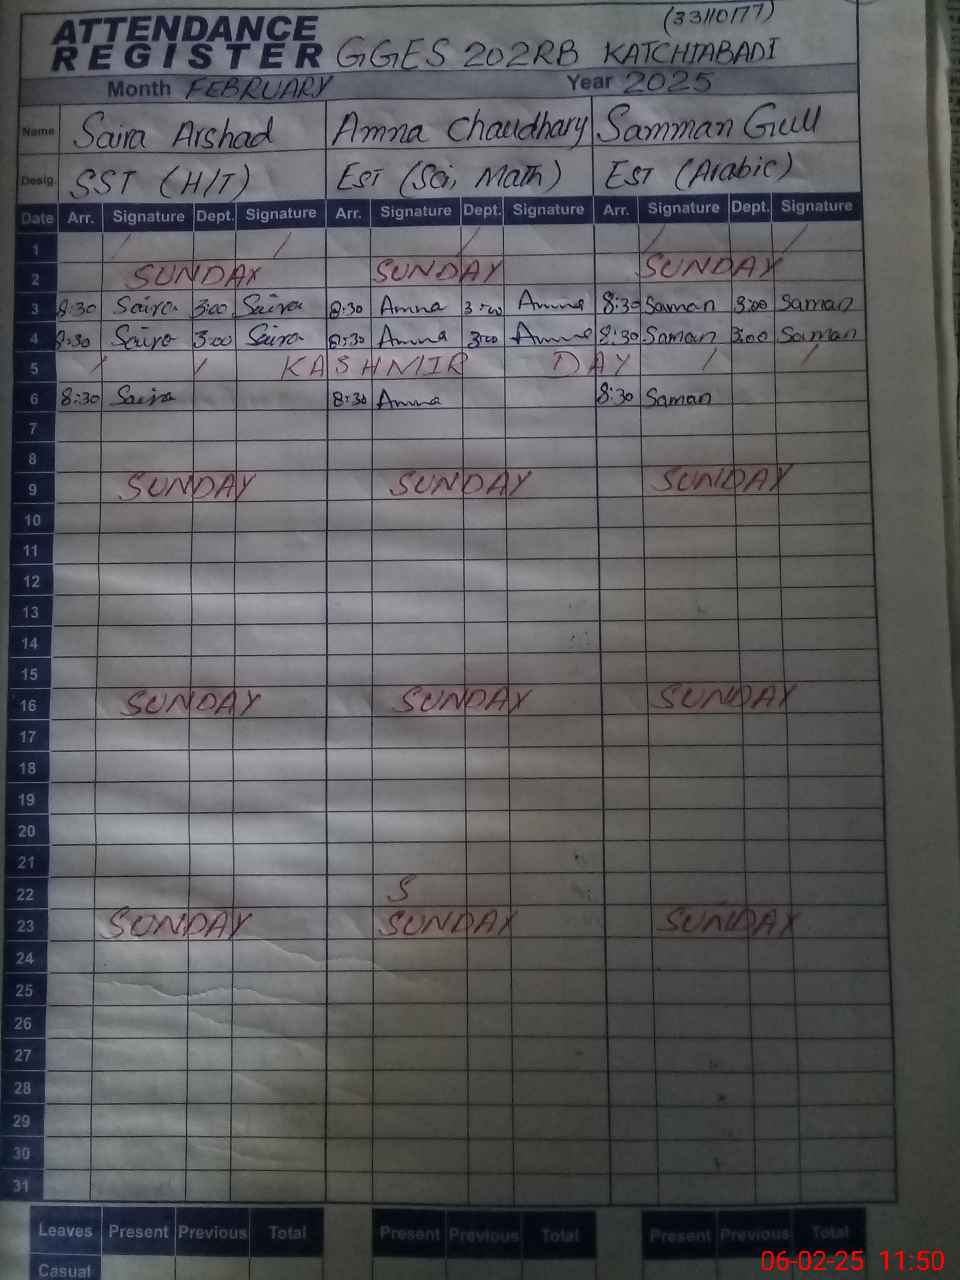 (33110177)
ATTENDANCE
REGISTER GGES 202RB KATCHIABADI
Month FEBRUARY Year 2025
Name Saira Arshad Amna Chaudhary Samman Gull
Desig. SST (H/T) EST (Sci, Math) EST (Arabic)
Date Arr. Signature Dept. Signature Arr. Signature Dept. Signature Arr. Signature Dept. Signature
1
2 SUNDAY SUNDAY SUNDAY
3 8:30 Saira 3:00 Saira 8:30 Amna 3:00 Amna 8:30 Saman 3:00 Saman
4 8:30 Saira 3:00 Saira 8:30 Amna 3:00 Amna 8:30 Saman 3:00 Saman
5 KASHMIR DAY
6 8:30 Saira 8:30 Amna 8:30 Saman
7
8
9 SUNDAY SUNDAY SUNDAY
10
11
12
13
14
15
16 SUNDAY SUNDAY SUNDAY
17
18
19
20
21
22 S
23 SUNDAY SUNDAY SUNDAY
24
25
26
27
28
29
30
31
Leaves Present Previous Total Present Previous Total Present Previous Total
Casual
06-02-25 11:50